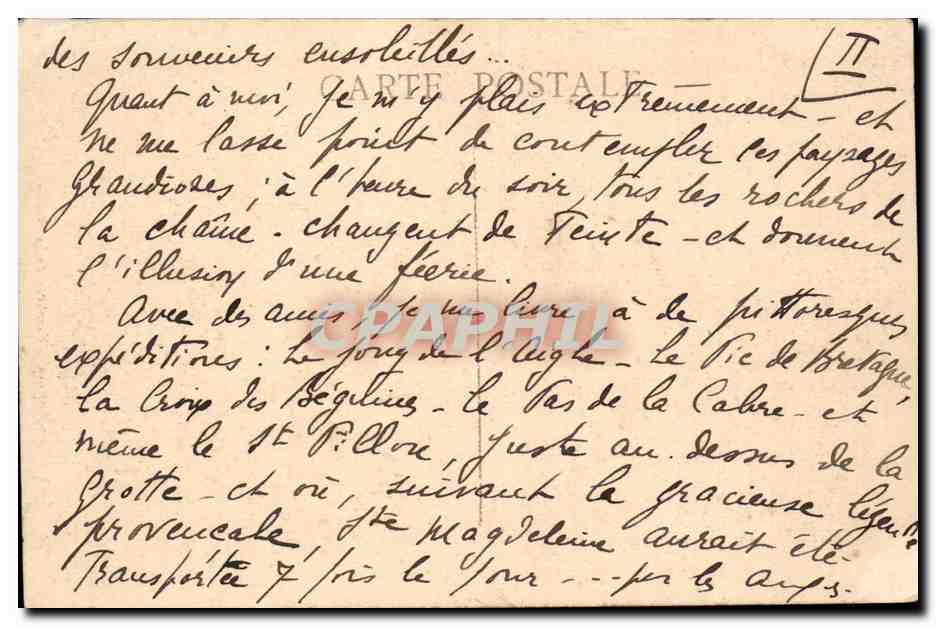 II
des souvenirs ensoleillés...
CARTE POSTALE
Quant à moi, je m'y plais extrêmement - et
ne me lasse point de contempler ces paysages
grandioses ; à l'heure du soir, tous les rochers de
la chaîne - changent de teinte - et donnent
l'illusion d'une féerie.
Avec des amis, je me livre à de pittoresques
expéditions : Le Joug de l'Aigle - Le Pic de Bretagne,
la Croix des Béguines - Le Pas de la Cabre - et
même le St Pillon, juste au-dessus de la
grotte - et où, suivant la gracieuse légende
provencale, Ste Magdeleine aurait été
transportée 7 fois le jour --- par les anges.
CPAPHIL